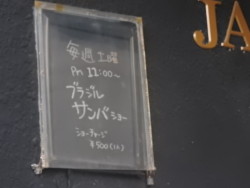 毎週土曜
Pm 12:00〜
ブラジル
サンバショー
ショーチャージ
¥500(1人)
JA